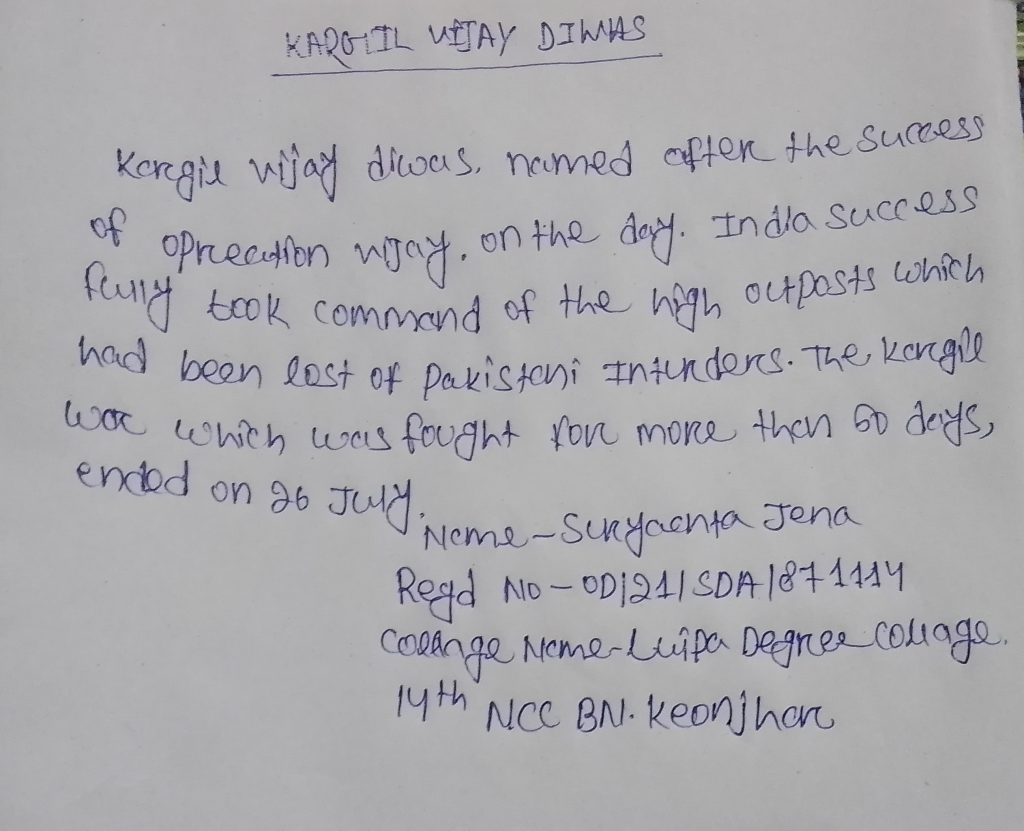 KARGIIL VIJAY DIWAS
Kargil vijay diwas, named after the success
of opreeation vijay. on the day. India success
fully took command of the high outposts which
had been lost of Pakistani Intruders. The Kargil
war which was fought for more than 60 days,
ended on 26 July.
Name - Suryaenta Jena
Regd No - OD/21/SDA/871114
Collange Name - Luipa Degree Collage.
14th NCC BN. Keonjhar